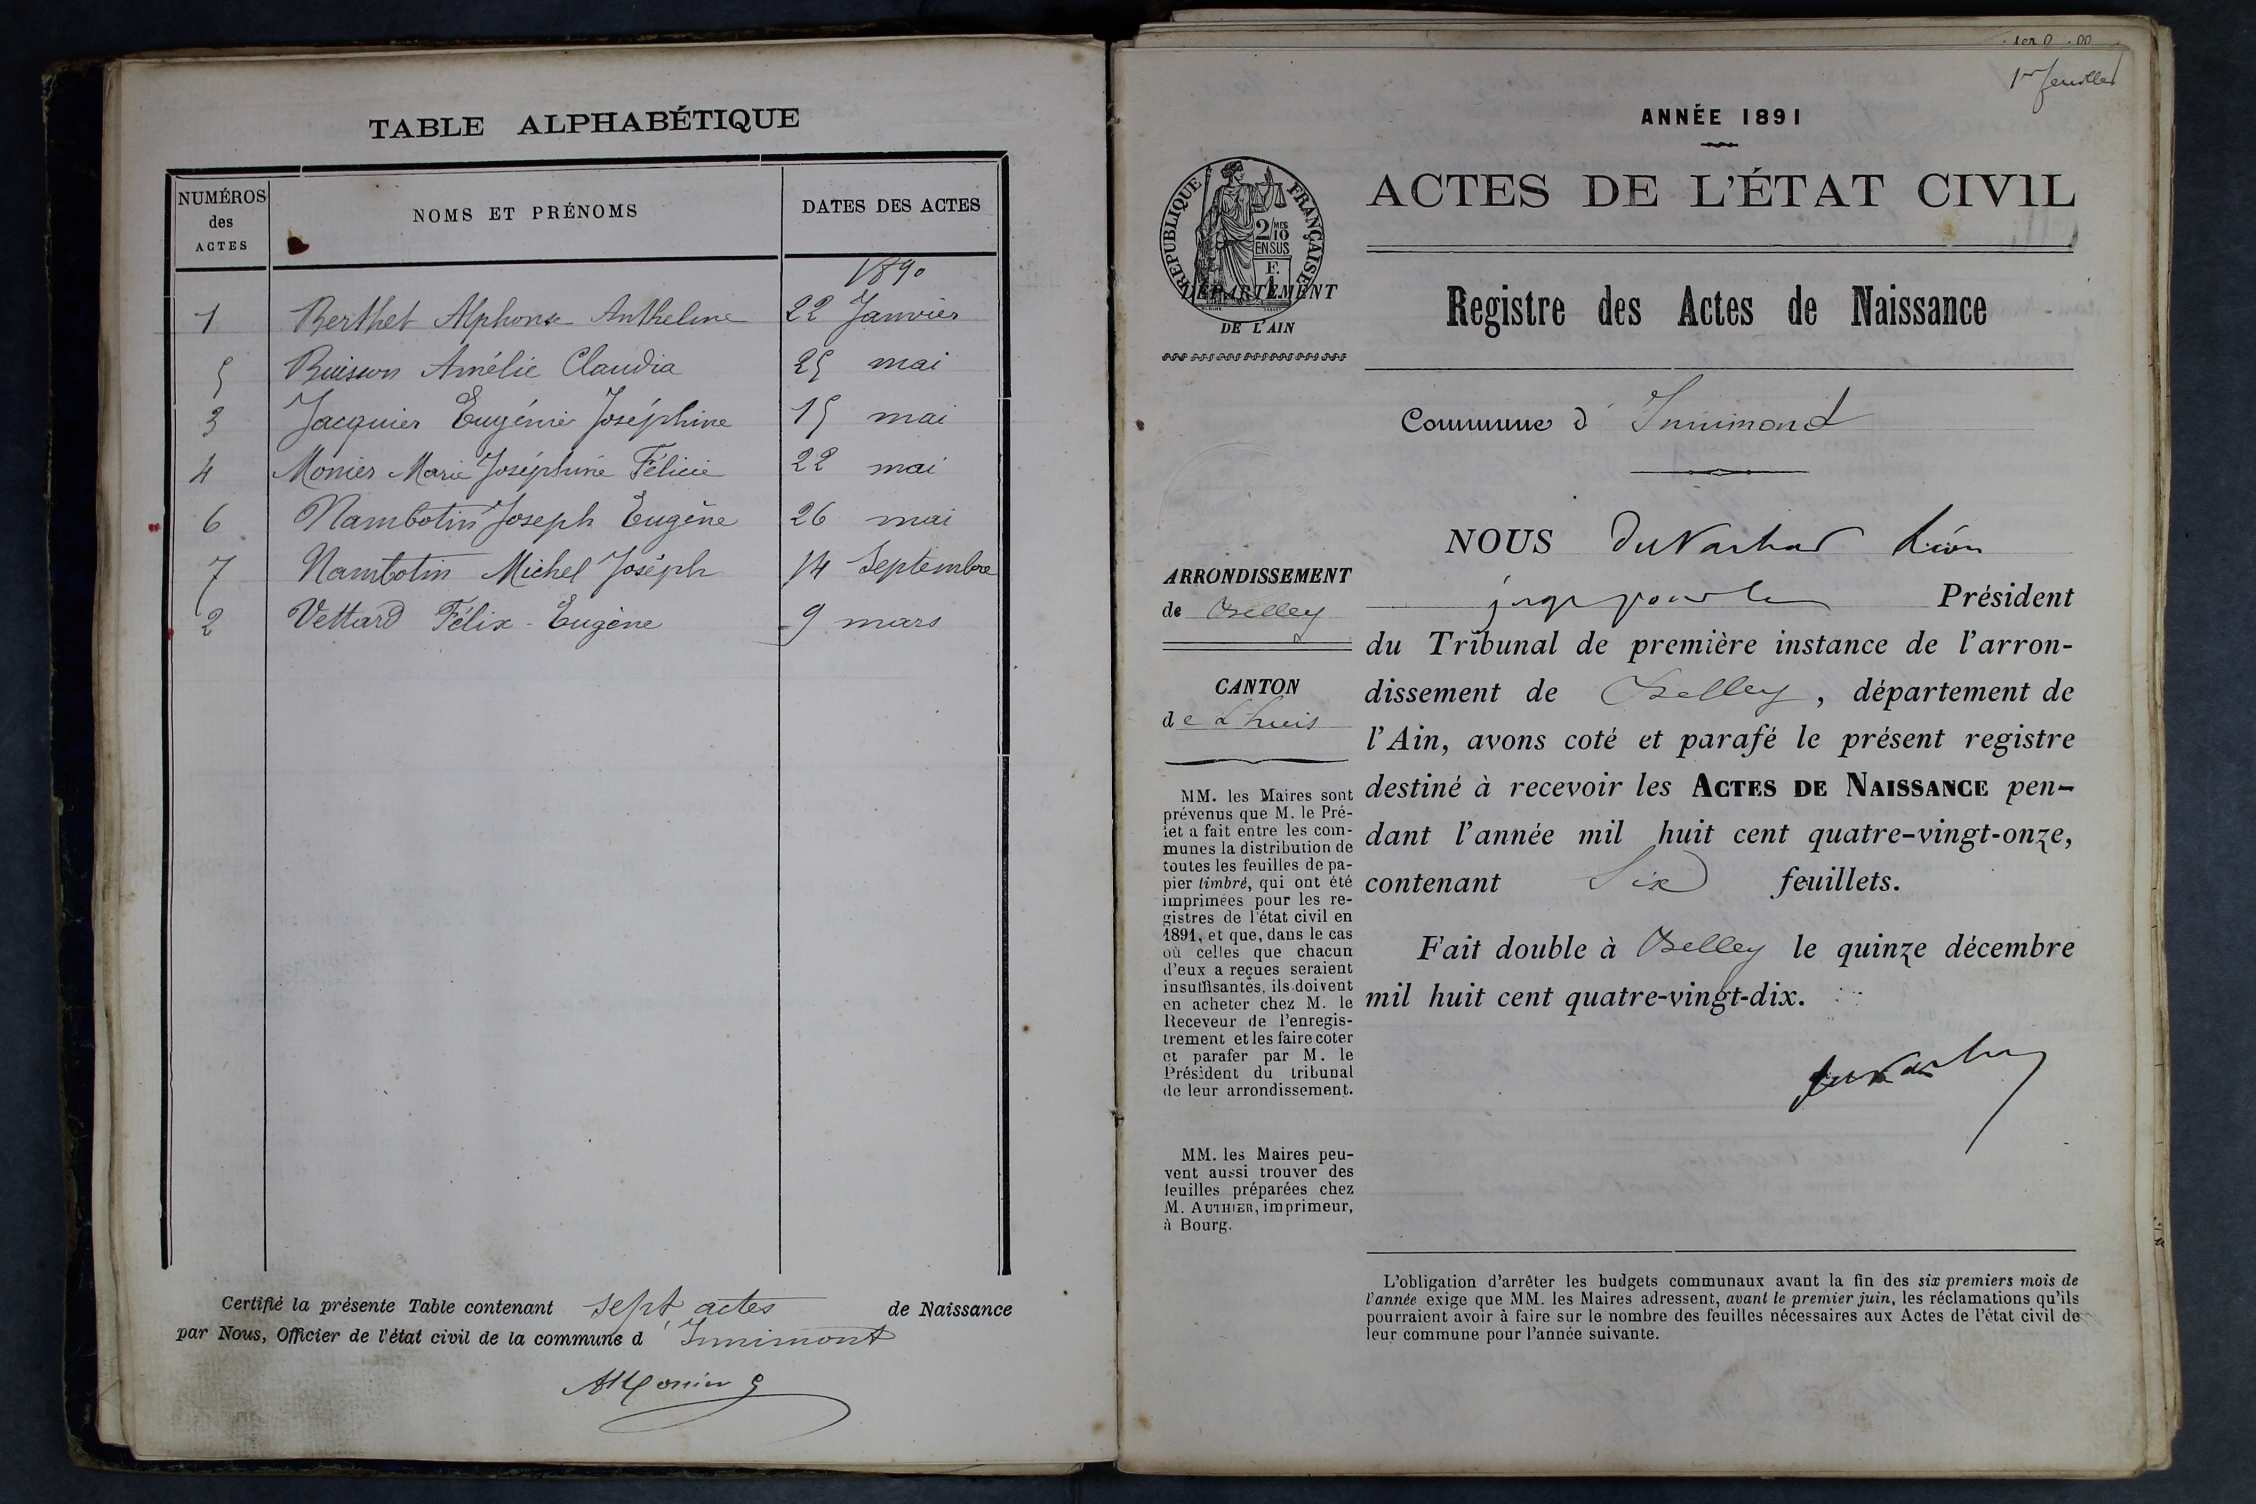 TABLE ALPHABÉTIQUE
NUMÉROS des ACTES NOMS ET PRÉNOMS DATES DES ACTES
1890
1 Berthet Alphonse Anthelme 22 Janvier
5 Buisson Amélie Claudia 25 mai
3 Jacquier Eugénie Joséphine 15 mai
4 Monier Marie Joséphine Félicie 22 mai
6 Nambotin Joseph Eugène 26 mai
7 Nambotin Michel Joseph 14 Septembre
2 Vettard Félix-Eugène 9 mars
Certifié la présente Table contenant sept actes de Naissance
par Nous, Officier de l'état civil de la commune d'Innimont
1er feuillet
ANNÉE 1891
RÉPUBLIQUE FRANÇAISE
2/10 MES
EN SUS
F.
1
DÉPARTEMENT
DE L'AIN
ACTES DE L'ÉTAT CIVIL
Registre des Actes de Naissance
Commune d'Innimond
ARRONDISSEMENT
de Belley
CANTON
de Lhuis
MM. les Maires sont
prévenus que M. le Pré-
fet a fait entre les com-
munes la distribution de
toutes les feuilles de pa-
pier timbré, qui ont été
imprimées pour les re-
gistres de l'état civil en
1891, et que, dans le cas
où celles que chacun
d'eux a reçues seraient
insuffisantes, ils doivent
en acheter chez M. le
Receveur de l'enregis-
trement et les faire coter
et parafer par M. le
Président du tribunal
de leur arrondissement.
MM. les Maires peu-
vent aussi trouver des
feuilles préparées chez
M. AUTHIER, imprimeur,
à Bourg.
NOUS Léon
Président
du Tribunal de première instance de l'arron-
dissement de Belley, département de
l'Ain, avons coté et parafé le présent registre
destiné à recevoir les ACTES DE NAISSANCE pen-
dant l'année mil huit cent quatre-vingt-onze,
contenant Six feuillets.
Fait double à Belley le quinze décembre
mil huit cent quatre-vingt-dix.
L'obligation d'arrêter les budgets communaux avant la fin des six premiers mois de
l'année exige que MM. les Maires adressent, avant le premier juin, les réclamations qu'ils
pourraient avoir à faire sur le nombre des feuilles nécessaires aux Actes de l'état civil de
leur commune pour l'année suivante.